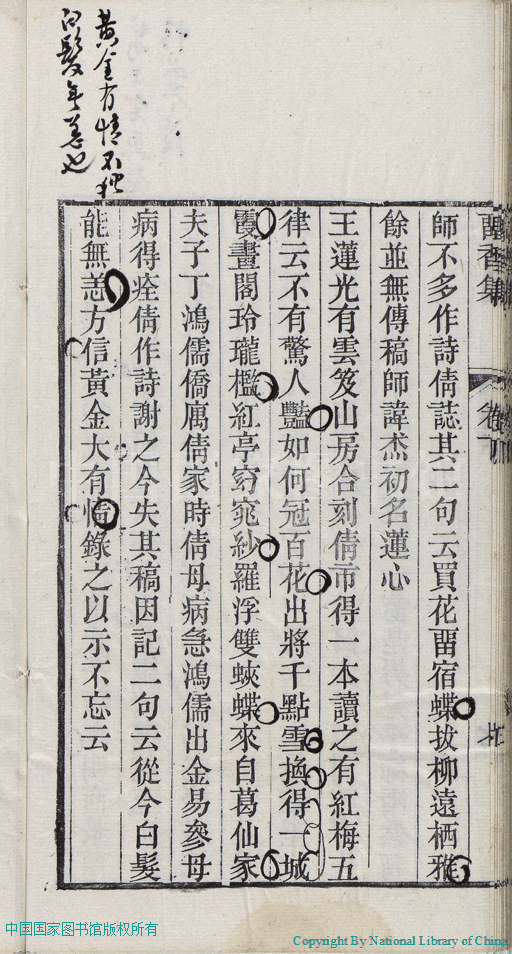 黃金有情不獨
白髮年羔也
留香集 卷下
師不多作詩倩誌其二句云買花畱宿蝶拔柳遠栖雅
餘並無傳稿師諱杰初名蓮心
王蓮光有雲笈山房合刻倩市得一本讀之有紅梅五
律云不有驚人豔如何冠百花出將千點雪換得一城
霞畫閣玲瓏檻紅亭窈窕紗羅浮雙蛺蝶來自葛仙家
夫子丁鴻儒僑寓倩家時倩母病急鴻儒出金易參母
病得痊倩作詩謝之今失其稿因記二句云從今白髮
能無恙方信黃金大有情錄之以示不忘云
中国国家图书馆版权所有
Copyright By National Library of China